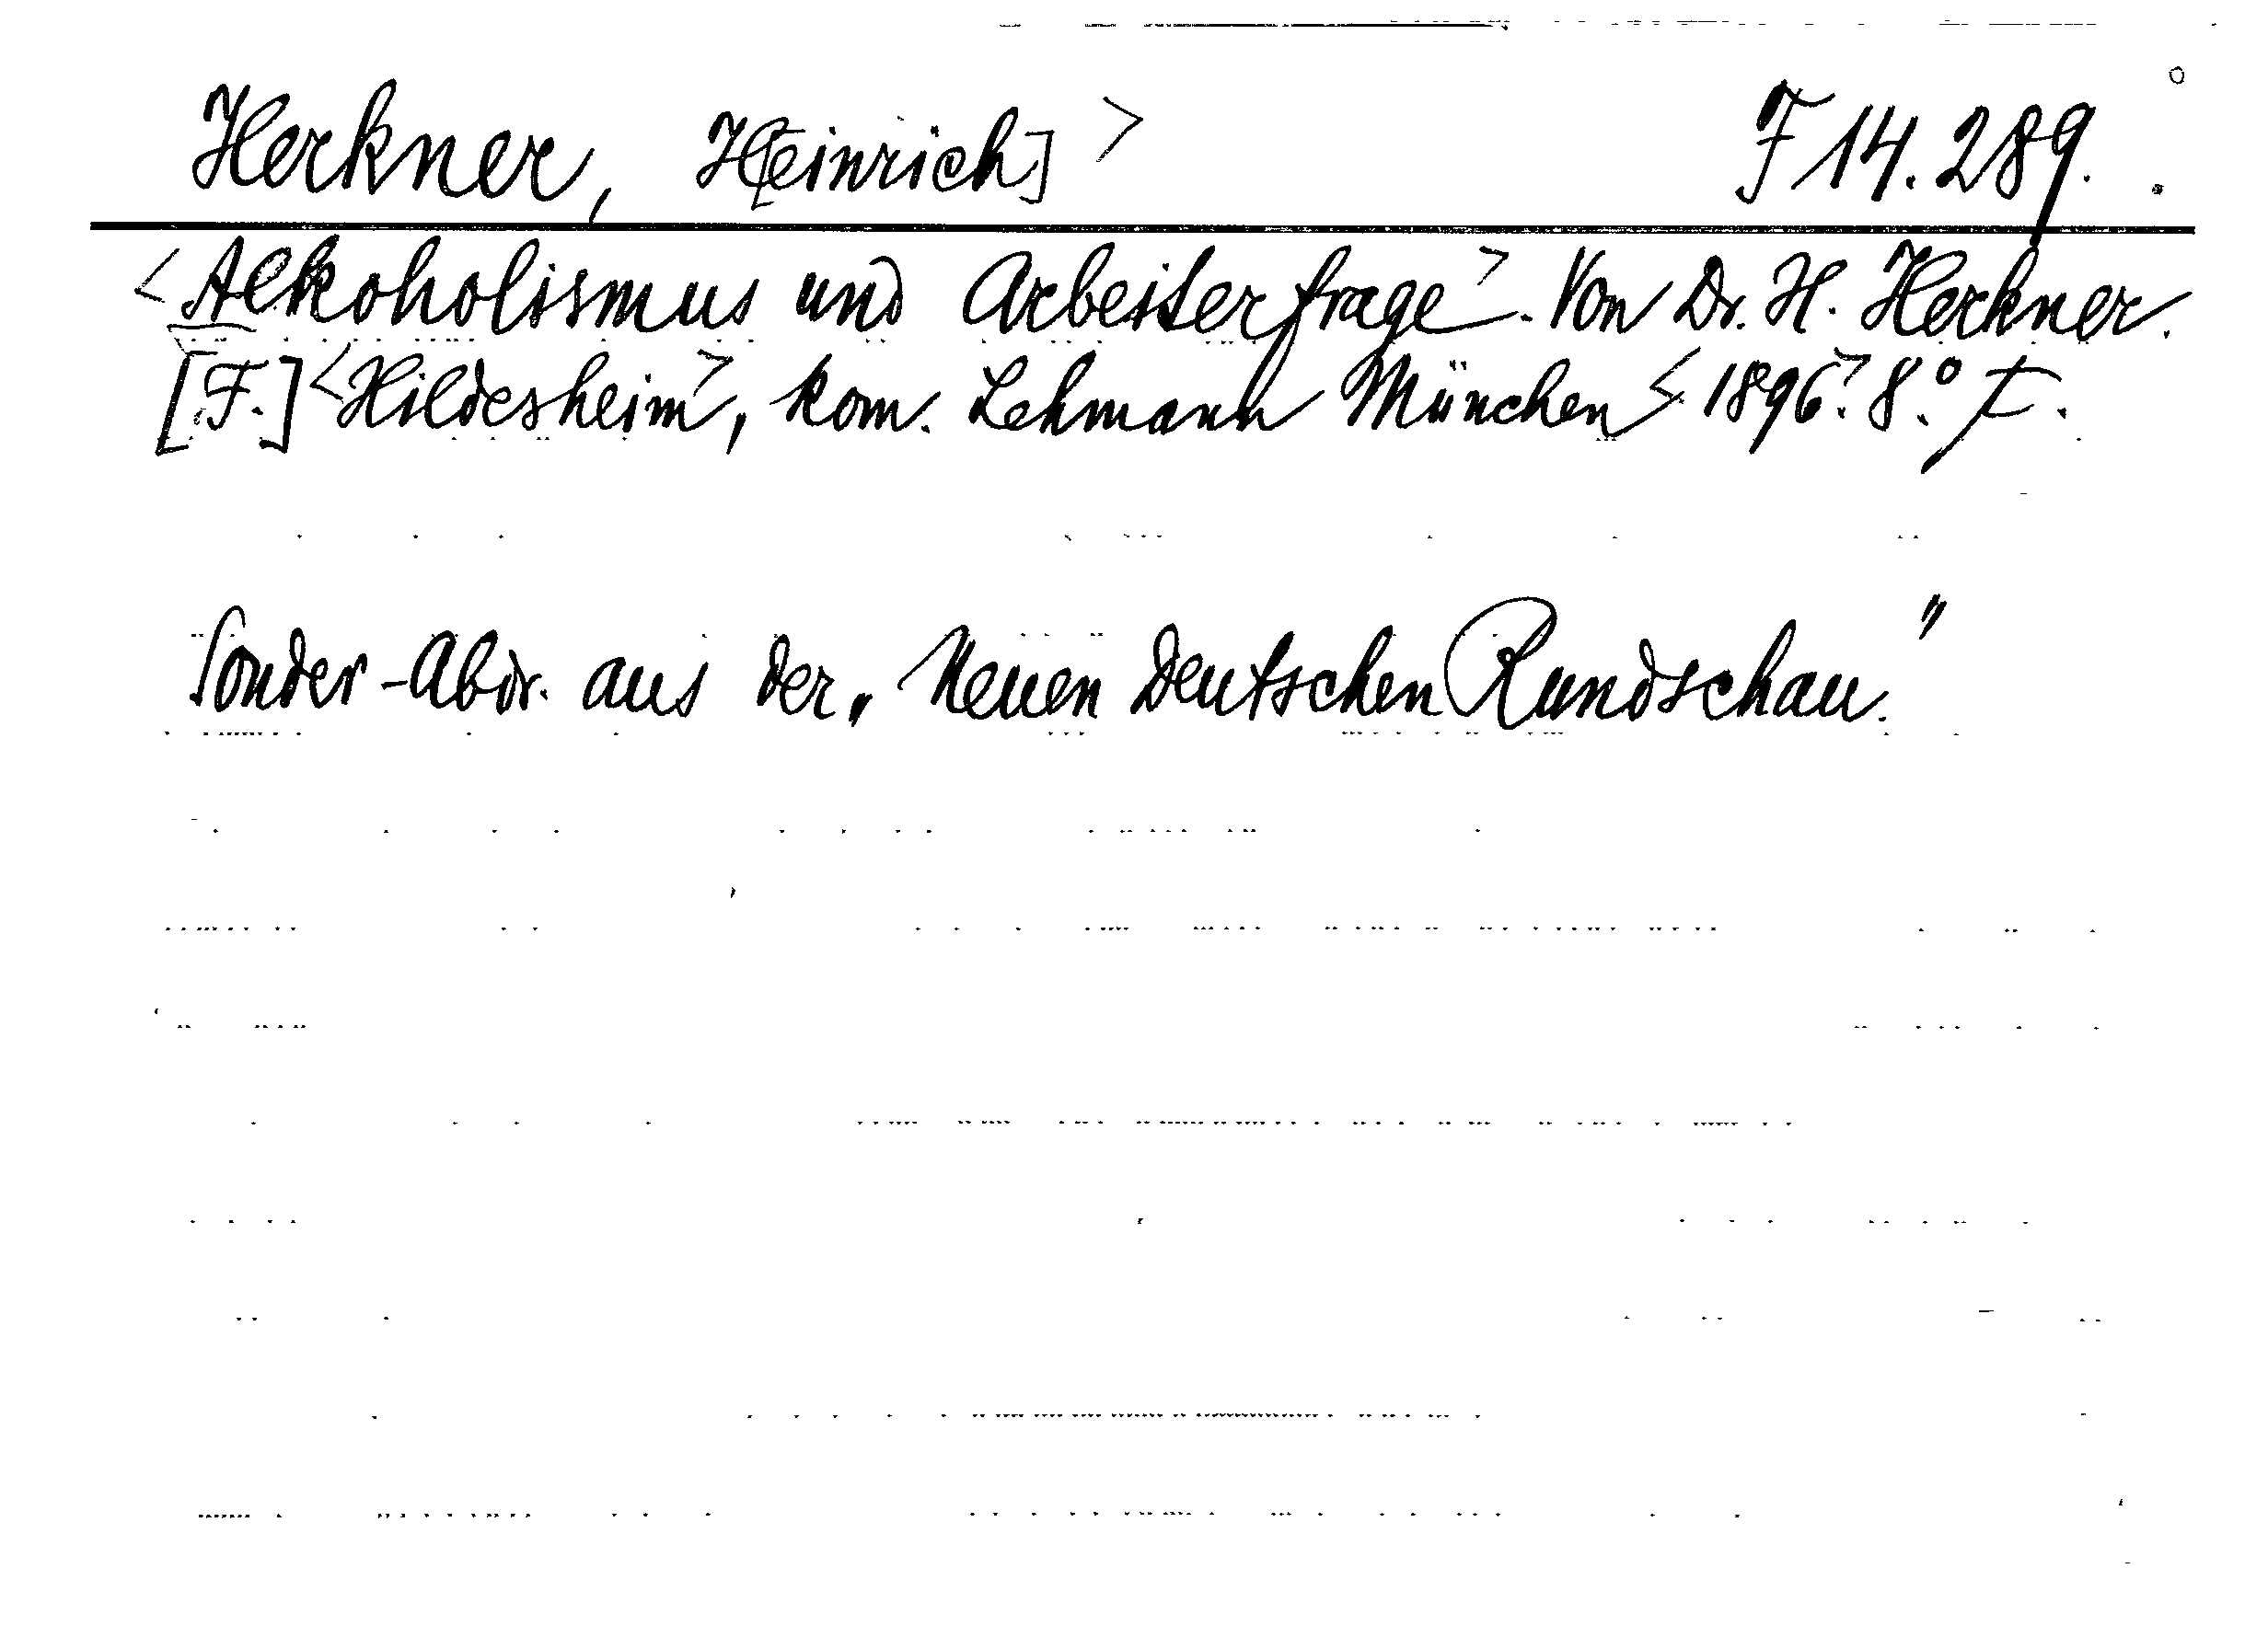 Herkner, H[einrich] > F 14.289.
<Alkoholismus und Arbeiterfrage>. Von Dr. H. Herkner.
[F.] <Hildesheim>, kom. Lehmann München <1896>. 8.° F.
Sonder-Abdr. aus der „Neuen Deutschen Rundschau."